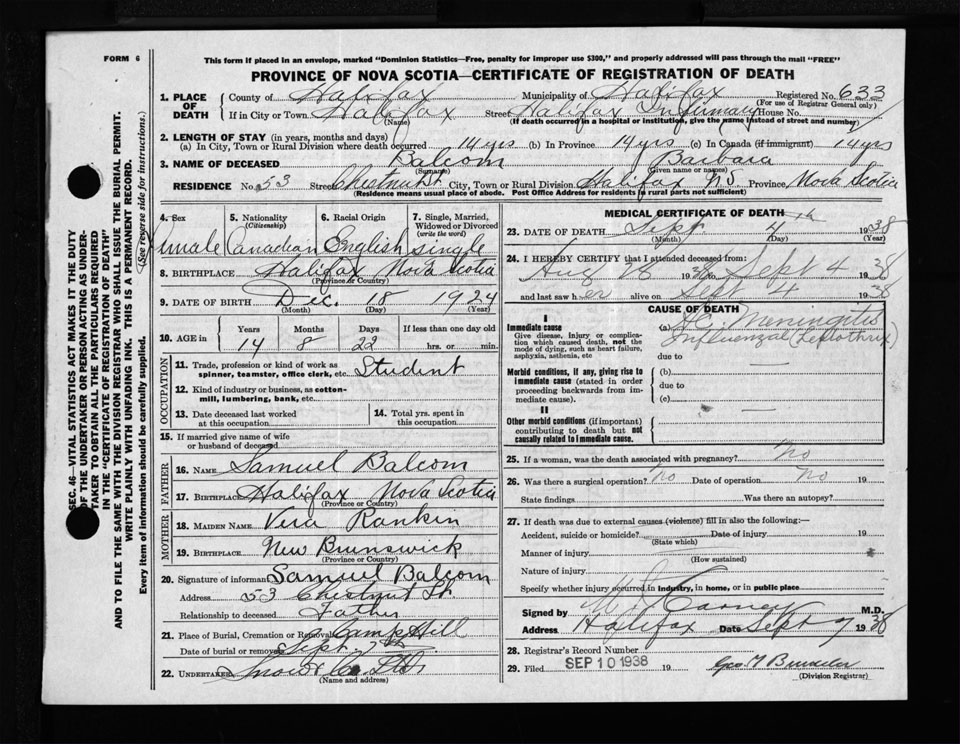 FORM 6
This form if placed in an envelope, marked "Dominion Statistics—Free, penalty for improper use $300," and properly addressed will pass through the mail "FREE"
PROVINCE OF NOVA SCOTIA—CERTIFICATE OF REGISTRATION OF DEATH
SEC. 46—VITAL STATISTICS ACT MAKES IT THE DUTY
OF THE UNDERTAKER OR PERSON ACTING AS UNDER-
TAKER TO OBTAIN ALL THE PARTICULARS REQUIRED
IN THE "CERTIFICATE OF REGISTRATION OF DEATH"
AND TO FILE THE SAME WITH THE DIVISION REGISTRAR WHO SHALL ISSUE THE BURIAL PERMIT.
WRITE PLAINLY WITH UNFADING INK. THIS IS A PERMANENT RECORD.
Every item of information should be carefully supplied. (See reverse side for instructions.)
1. PLACE OF DEATH County of Halifax Municipality of Halifax Registered No. 633
(For use of Registrar General only)
If in City or Town Halifax Street Halifax Infirmary House No.
(Name) (If death occurred in a hospital or institution, give the name instead of street and number)
2. LENGTH OF STAY (in years, months and days)
(a) In City, Town or Rural Division where death occurred 14 yrs (b) In Province 14 yrs (c) In Canada (if immigrant) 14 yrs
3. NAME OF DECEASED Balcom Barbara
(Surname) (Given name or names)
RESIDENCE No. 53 Street Chestnut St. City, Town or Rural Division Halifax N.S. Province Nova Scotia
(Residence means usual place of abode. Post Office Address for residents in rural parts not sufficient)
4. Sex 5. Nationality (Citizenship) 6. Racial Origin 7. Single, Married, Widowed or Divorced (write the word)
Female Canadian English single
8. BIRTHPLACE Halifax Nova Scotia
(Province or Country)
9. DATE OF BIRTH Dec. 18 1924
(Month) (Day) (Year)
10. AGE in Years Months Days If less than one day old
14 8 22 hrs. or min.
OCCUPATION
11. Trade, profession or kind of work as spinner, teamster, office clerk, etc. Student
12. Kind of industry or business, as cotton-mill, lumbering, bank, etc.
13. Date deceased last worked at this occupation 14. Total yrs. spent in this occupation
15. If married give name of wife or husband of deceased
FATHER
16. NAME Samuel Balcom
17. BIRTHPLACE Halifax Nova Scotia
(Province or Country)
MOTHER
18. MAIDEN NAME Vera Rankin
19. BIRTHPLACE New Brunswick
(Province or Country)
20. Signature of informant Samuel Balcom
Address 53 Chestnut St.
Relationship to deceased Father
21. Place of Burial, Cremation or Removal Camp Hill
Date of burial or removal Sept. 7th
22. UNDERTAKER Snow & Co. Ltd.
(Name and address)
MEDICAL CERTIFICATE OF DEATH
23. DATE OF DEATH Sept 4th 1938
(Month) (Day) (Year)
24. I HEREBY CERTIFY that I attended deceased from:
Aug 28 1938 Sept 4 1938
and last saw her alive on Sept 4 1938
CAUSE OF DEATH
I
Immediate cause
Give disease, injury or complication which caused death, not the mode of dying, such as heart failure, asphyxia, asthenia, etc
(a) Meningitis
Influenzal (Leptothrix)
due to
Morbid conditions, if any, giving rise to immediate cause (stated in order proceeding backwards from immediate cause).
(b)
due to
(c)
II
Other morbid conditions (if important) contributing to death but not causally related to immediate cause.
25. If a woman, was the death associated with pregnancy? No
26. Was there a surgical operation? no Date of operation no 19
State findings Was there an autopsy?
27. If death was due to external causes (violence) fill in also the following:—
Accident, suicide or homicide? Date of injury 19
(State which)
Manner of injury
(How sustained)
Nature of injury
Specify whether injury occurred in industry, in home, or in public place
Signed by Carney M.D.
Address Halifax Date Sept 7 1938
28. Registrar's Record Number
29. Filed SEP 10 1938 19
(Division Registrar)